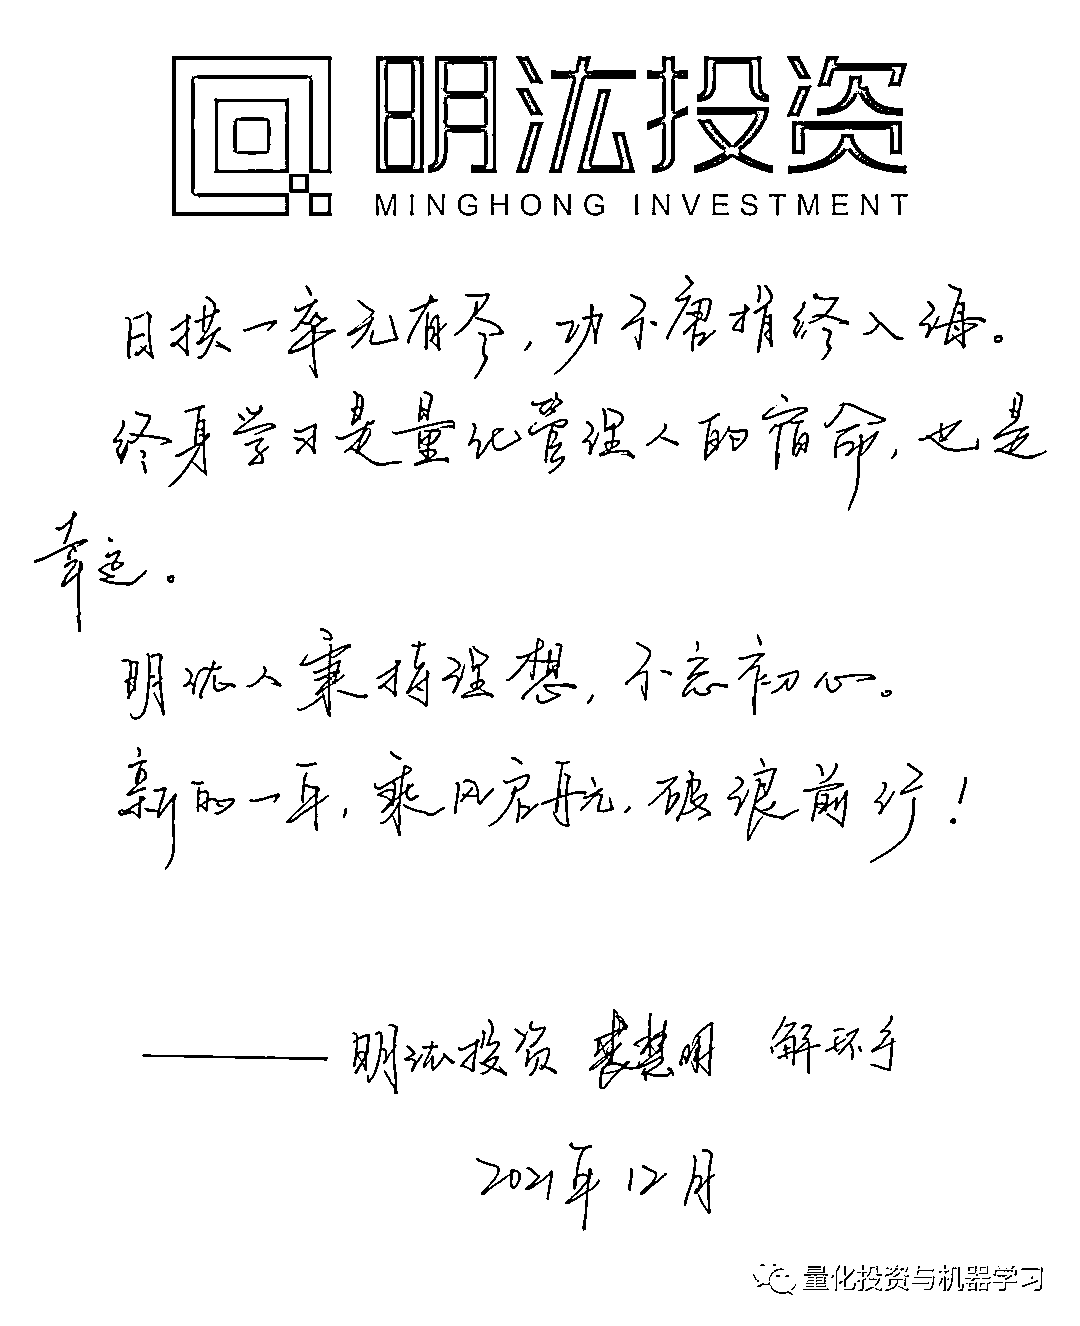 明汯投资
MINGHONG INVESTMENT
日拱一卒无有尽，功不唐捐终入海。
终身学习是量化管理人的宿命，也是
幸运。
明汯人秉持理想，不忘初心。
新的一年，乘风启再元，破浪前行！
——明汯投资 裘慧明 解环宇
2021年12月
量化投资与机器学习